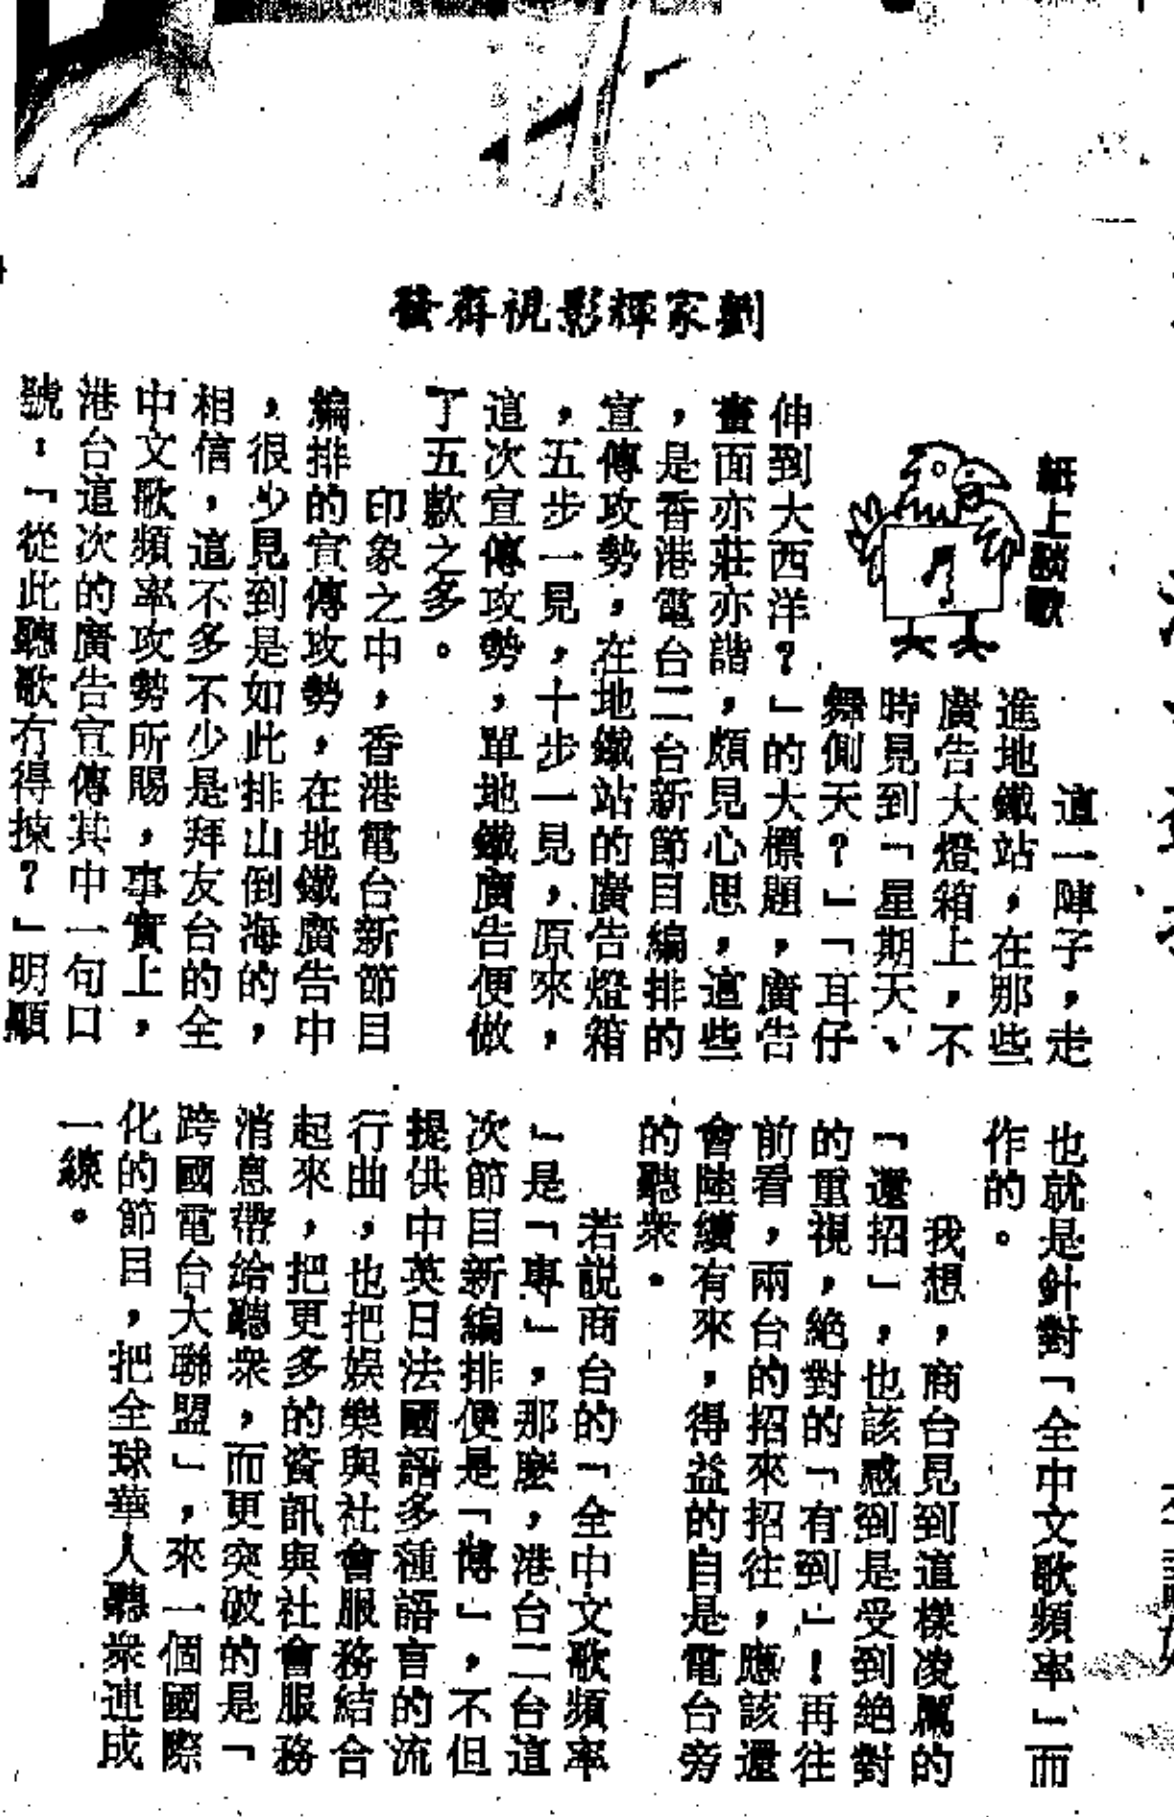 劉家輝影視齊發
紙上談歌
這一陣子，走
進地鐵站，在那些
廣告大燈箱上，不
時見到「星期天、
舞側天？」「耳仔
伸到大西洋？」的大標題，廣告
畫面亦莊亦諧，頗見心思，這些
，是香港電台二台新節目編排的
宣傳攻勢，在地鐵站的廣告燈箱
，五步一見，十步一見，原來，
這次宣傳攻勢，單地鐵廣告便做
了五款之多。
印象之中，香港電台新節目
編排的宣傳攻勢，在地鐵廣告中
，很少見到是如此排山倒海的，
相信，這不多不少是拜友台的全
中文歌頻率攻勢所賜，事實上，
港台這次的廣告宣傳其中一句口
號：「從此聽歌冇得揀？」明顯
也就是針對「全中文歌頻率」而
作的。
我想，商台見到這樣凌厲的
「還招」，也該感到是受到絕對
的重視，絕對的「有到」！再往
前看，兩台的招來招往，應該還
會陸續有來，得益的自是電台旁
的聽眾。
若說商台的「全中文歌頻率
」是「專」，那麼，港台二台這
次節目新編排便是「博」，不但
提供中英日法國語多種語言的流
行曲，也把娛樂與社會服務結合
起來，把更多的資訊與社會服務
消息帶給聽眾，而更突破的是「
跨國電台大聯盟」，來一個國際
化的節目，把全球華人聽眾連成
一線。